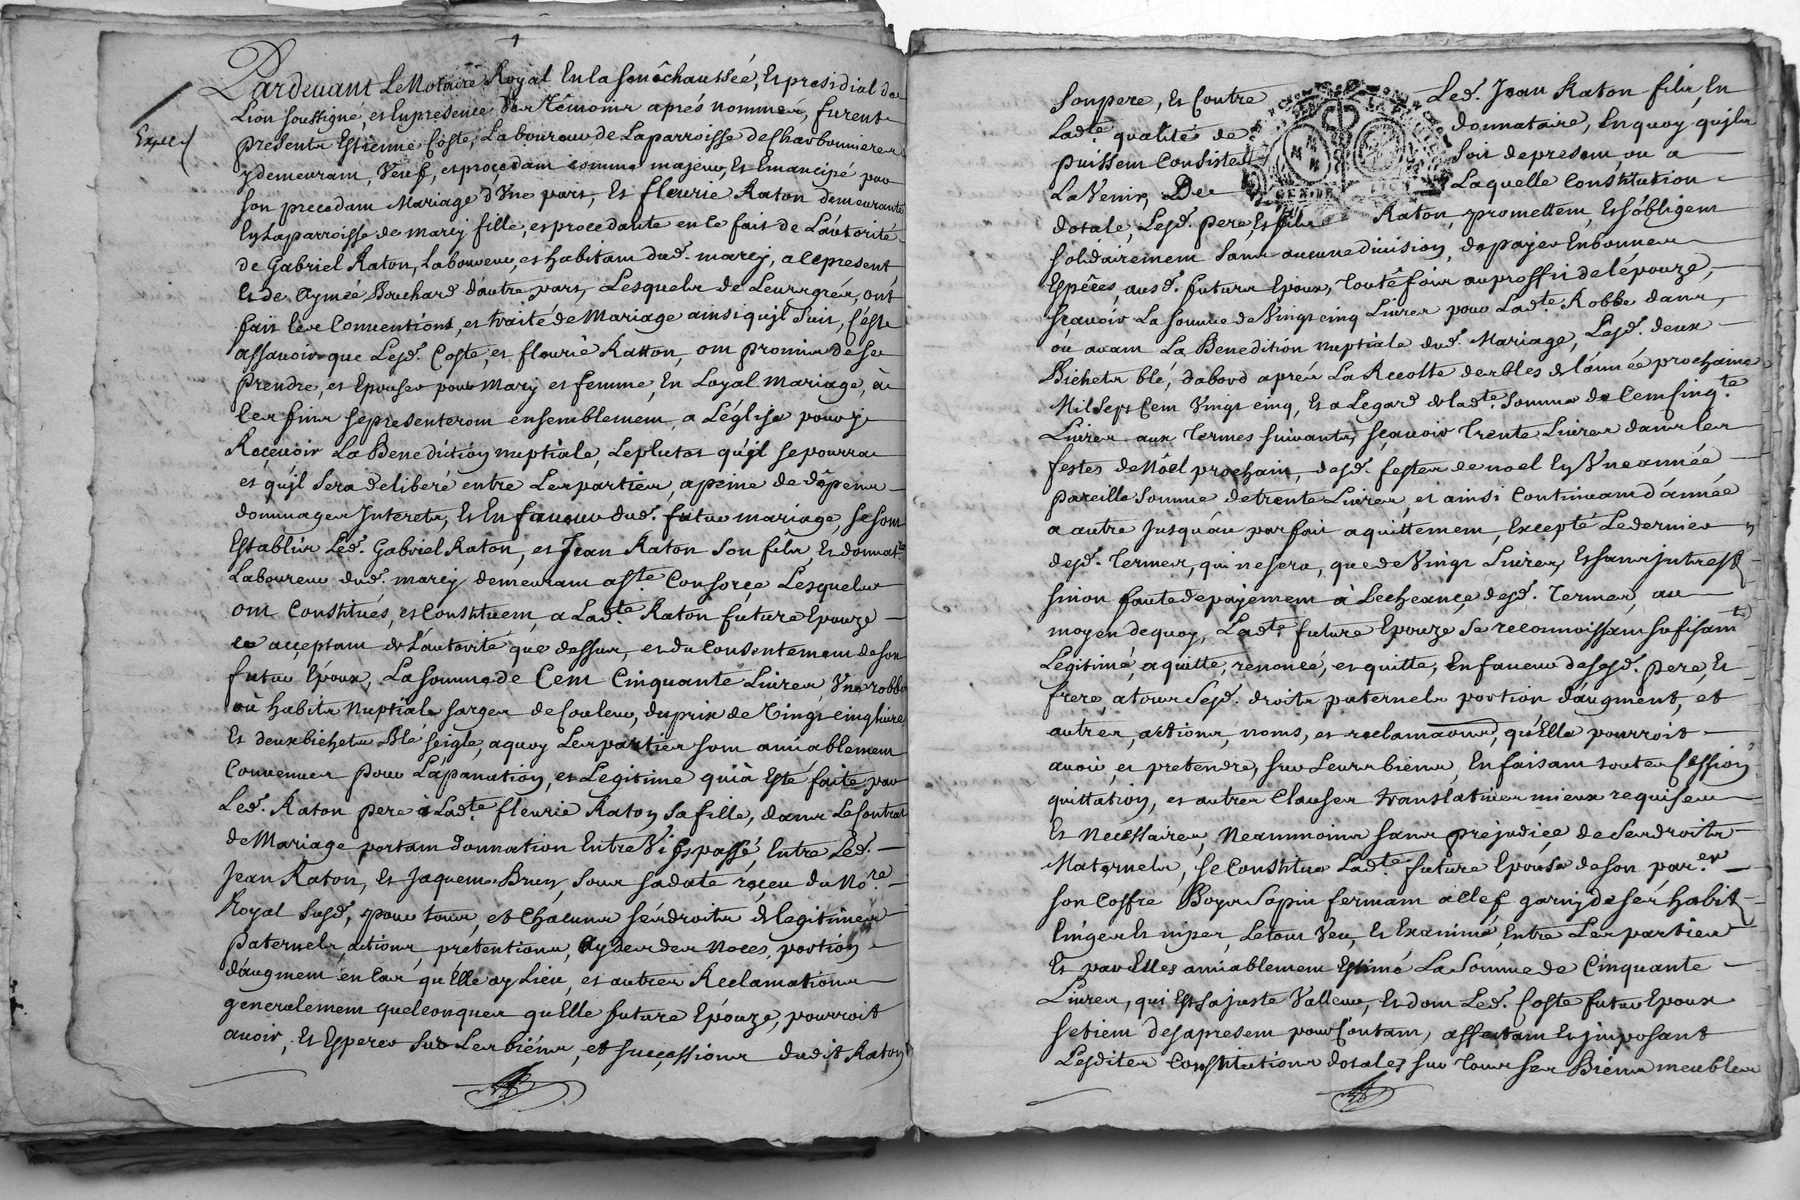 1
Pardevant Le Notaire Royal En la Senêchaussée, Et presidial de
Lion soussigné, et En presence Des Têmoins aprés nommés, furent
Exped
presents Estienne Coste, Laboureur de La parroisse de Charbonnieres
y demeurant, Veuf, et procedant comme majeur, Et Emancipé par
son precedant Mariage d'Une part, Et fleurie Raton demeurante
En La parroisse de marcy fille, et procedante en ce fait de L'autorité
de Gabriel Raton, Laboureur, et habitant dud. marcy, a ce present
Et de Aymeé Bouchard d'autre part, Lesquels de Leurs grés, ont
fait les Conventions, et traité de Mariage ainsi qu'jl Suit, C'est
assavoir que Lesd. Coste, et fleurie Ratton, ont promis de se
prendre, et Epouser pour Mary et femme, En Loyal Mariage, à
ces fins se presenteront ensemblement, a L'église pour y
Reçevoir La Benediction nuptiale, Le plutot qu'jl se pourra
et qu'jl Sera deliberé entre Les parties, a peine de dêpens
dommages Interets, Et En faveur dud. futur mariage, se sont
Establis Led. Gabriel Raton, et Jean Raton Son fils, Et donnat.re
Laboureur dud. marcy demeurant
Lesquels
ont Constitués, et Constituent, a Lad.te Raton future Epouze
ce acçeptant de L'autorité que dessus, et du Consentement de son
futur Epoux, La somme de Cent Cinquante Livres, Une robbe
où habits Nuptiale sarges de Couleur, du prix de Vingt cinq livres
Et deux bichets Blé seigle, a quoy Les parties sont amiablement
Convenues pour L'apanation, et Legitime qui à Esté faite par
Led. Raton pere à Lad.te fleurie Raton Sa fille, dans Le Contrat
de Mariage portant Donnation Entre Vifs passé, Entre Led.
Jean Raton, Et Jaqueme Brun, sous sa date reçeu du No.re
Royal Susd., pour tous, et Chacuns ses droits de legitimes
paternels actions, prétentions, ayder des Noces, portion
d'augment en Cas qu'Elle ay Lieu, et autres Reclamations
generalement quelconques qu'Elle future Epouze, pourroit
avoir, Et Esperer sur Les biens, et successions dudit Raton
son pere, Et Contre Led. Jean Raton fils, En
Lad.te qualité de donnataire, En quoy qu'jls
puissent Consister soit de present ou a
La Venir, De Laquelle Constitution
GEN DE LION
dotale, Lesd. pere, Et fils Raton, promettent, Et s'obligent
solidairement sans aucune division, de payer En bonnes
Espêces, ausd. futurs Epoux, toutêfois au proffit de l'épouze,
sçavoir La somme de Vingt cinq Livres pour Lad.te Robbe dans,
où avant La Benedition nuptiale dud. Mariage, Lesd. deux
Bichets blé, d'abord aprés La Recolte des bles de l'année prochaine
Mil Sept Cent Vingt cinq, Et a L'egard de lad.te Somme de Cent cinq.te
Livres aux Termes suivants, sçavoir Trente Livres dans les
festes de Noêl prochain, desd. festes de noel En Une année
pareille Somme de trente Livres, et ainsi Continuant d'année
a autre jusqu'au parfait aquittement, Excepté Le dernier
desd. Termes, qui ne sera, que de Vingt Livres, Et sans jnterest
sinon faute de payement à L'echeançe desd. Termes, au
moyen de quoy, Lad.te future Epouze Se reconnoissant sufisam.t
Legitimé, aquitte, renoncé, et quitte, En faveur de sesd. pere, Et
frere, a tous sesd. droits paternels portion d'augment, et
autres, actions, noms, et reclamaons, qu'Elle pourroit
avoir, et pretendre, sur Leurs biens, En faisant toutes Cession
quittation, et autres Clauses translatives mieux requises
Et Necessaires, Neammoins sans prejudiçe de Ses droits
Maternels, Se Constitue Lad.te future Epouse de son par.er
son Coffre Boys Sapin fermant a Clef garnj de ses habits
Linges Et nipes, Le tout Veu, Et Examiné, Entre Les parties
Et par Elles amiablement Estimé La Somme de Cinquante
Livres, qui Est sa juste Valleur, Et dont Led. Coste futur Epoux
se tient des a present pour Contant, affectant Et jmposant
Lesdites Constitutions dotales, sur Tous ses Biens meubles